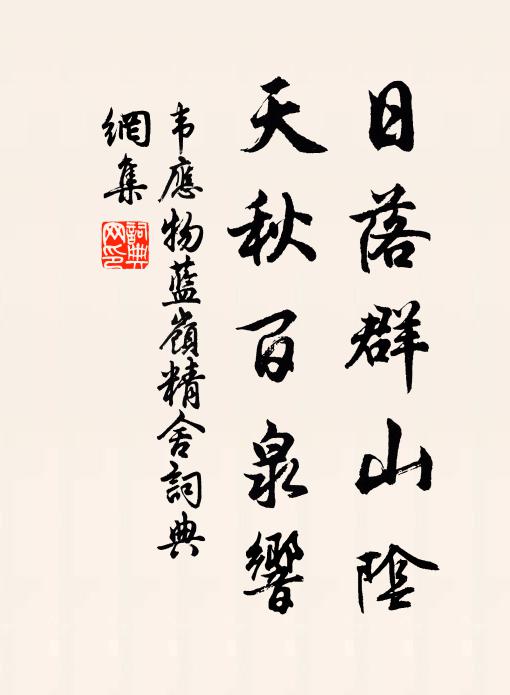 日落群山陰
天秋百泉響
韦應物藍嶺精舍詞典
網集
詞典
网印